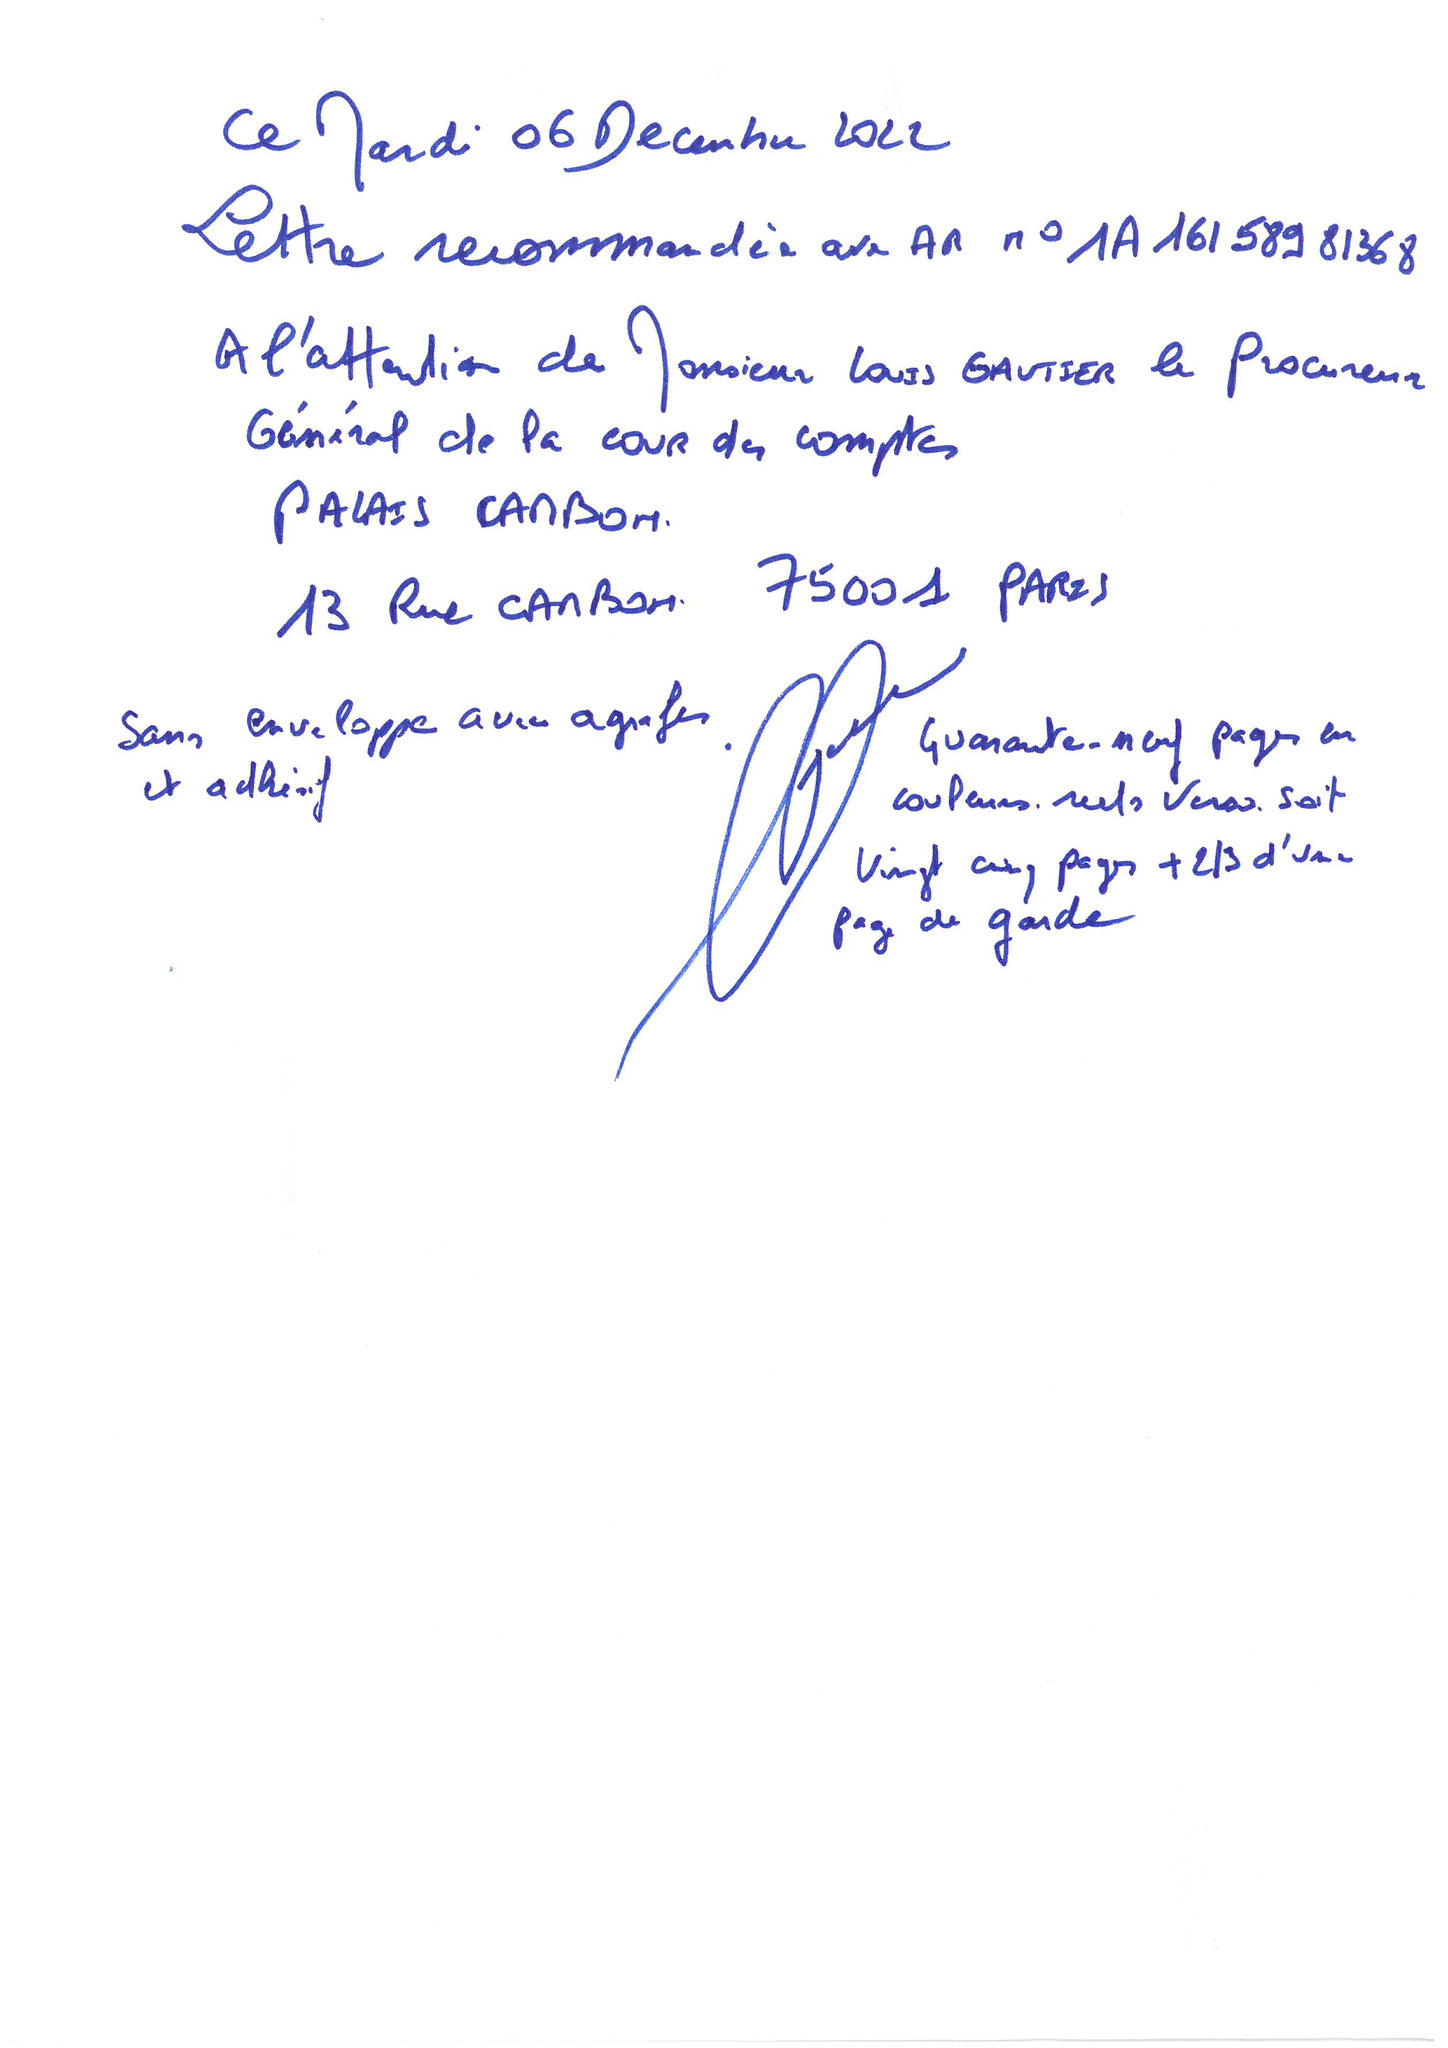 Ce Mardi 06 Decembre 2022
Lettre recommandée avec AR n° 1A 161 589 8136 8
A l'attention de Monsieur LOUIS GAUTIER le Procureur
Général de la cour des comptes
PALAIS CAMBON.
13 Rue CAMBON. 75001 PARIS
Sans enveloppe avec agrafes
et adhésif
Quarante-neuf pages en
couleurs. recto Verso. soit
Vingt cinq pages + 2/3 d'une
page de garde